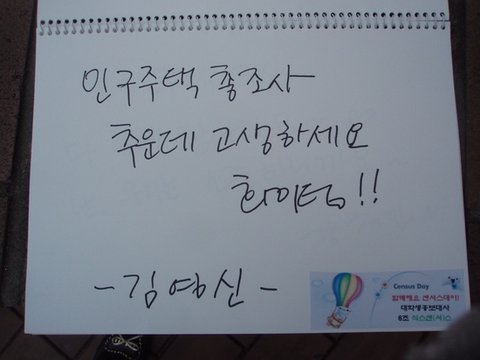 인구주택 총조사
추운데 고생하세요
화이팅!!
- 김영신 -
Census Day
함께해요 센서스데이!
대학생홍보대사
6조 식스센(서)스